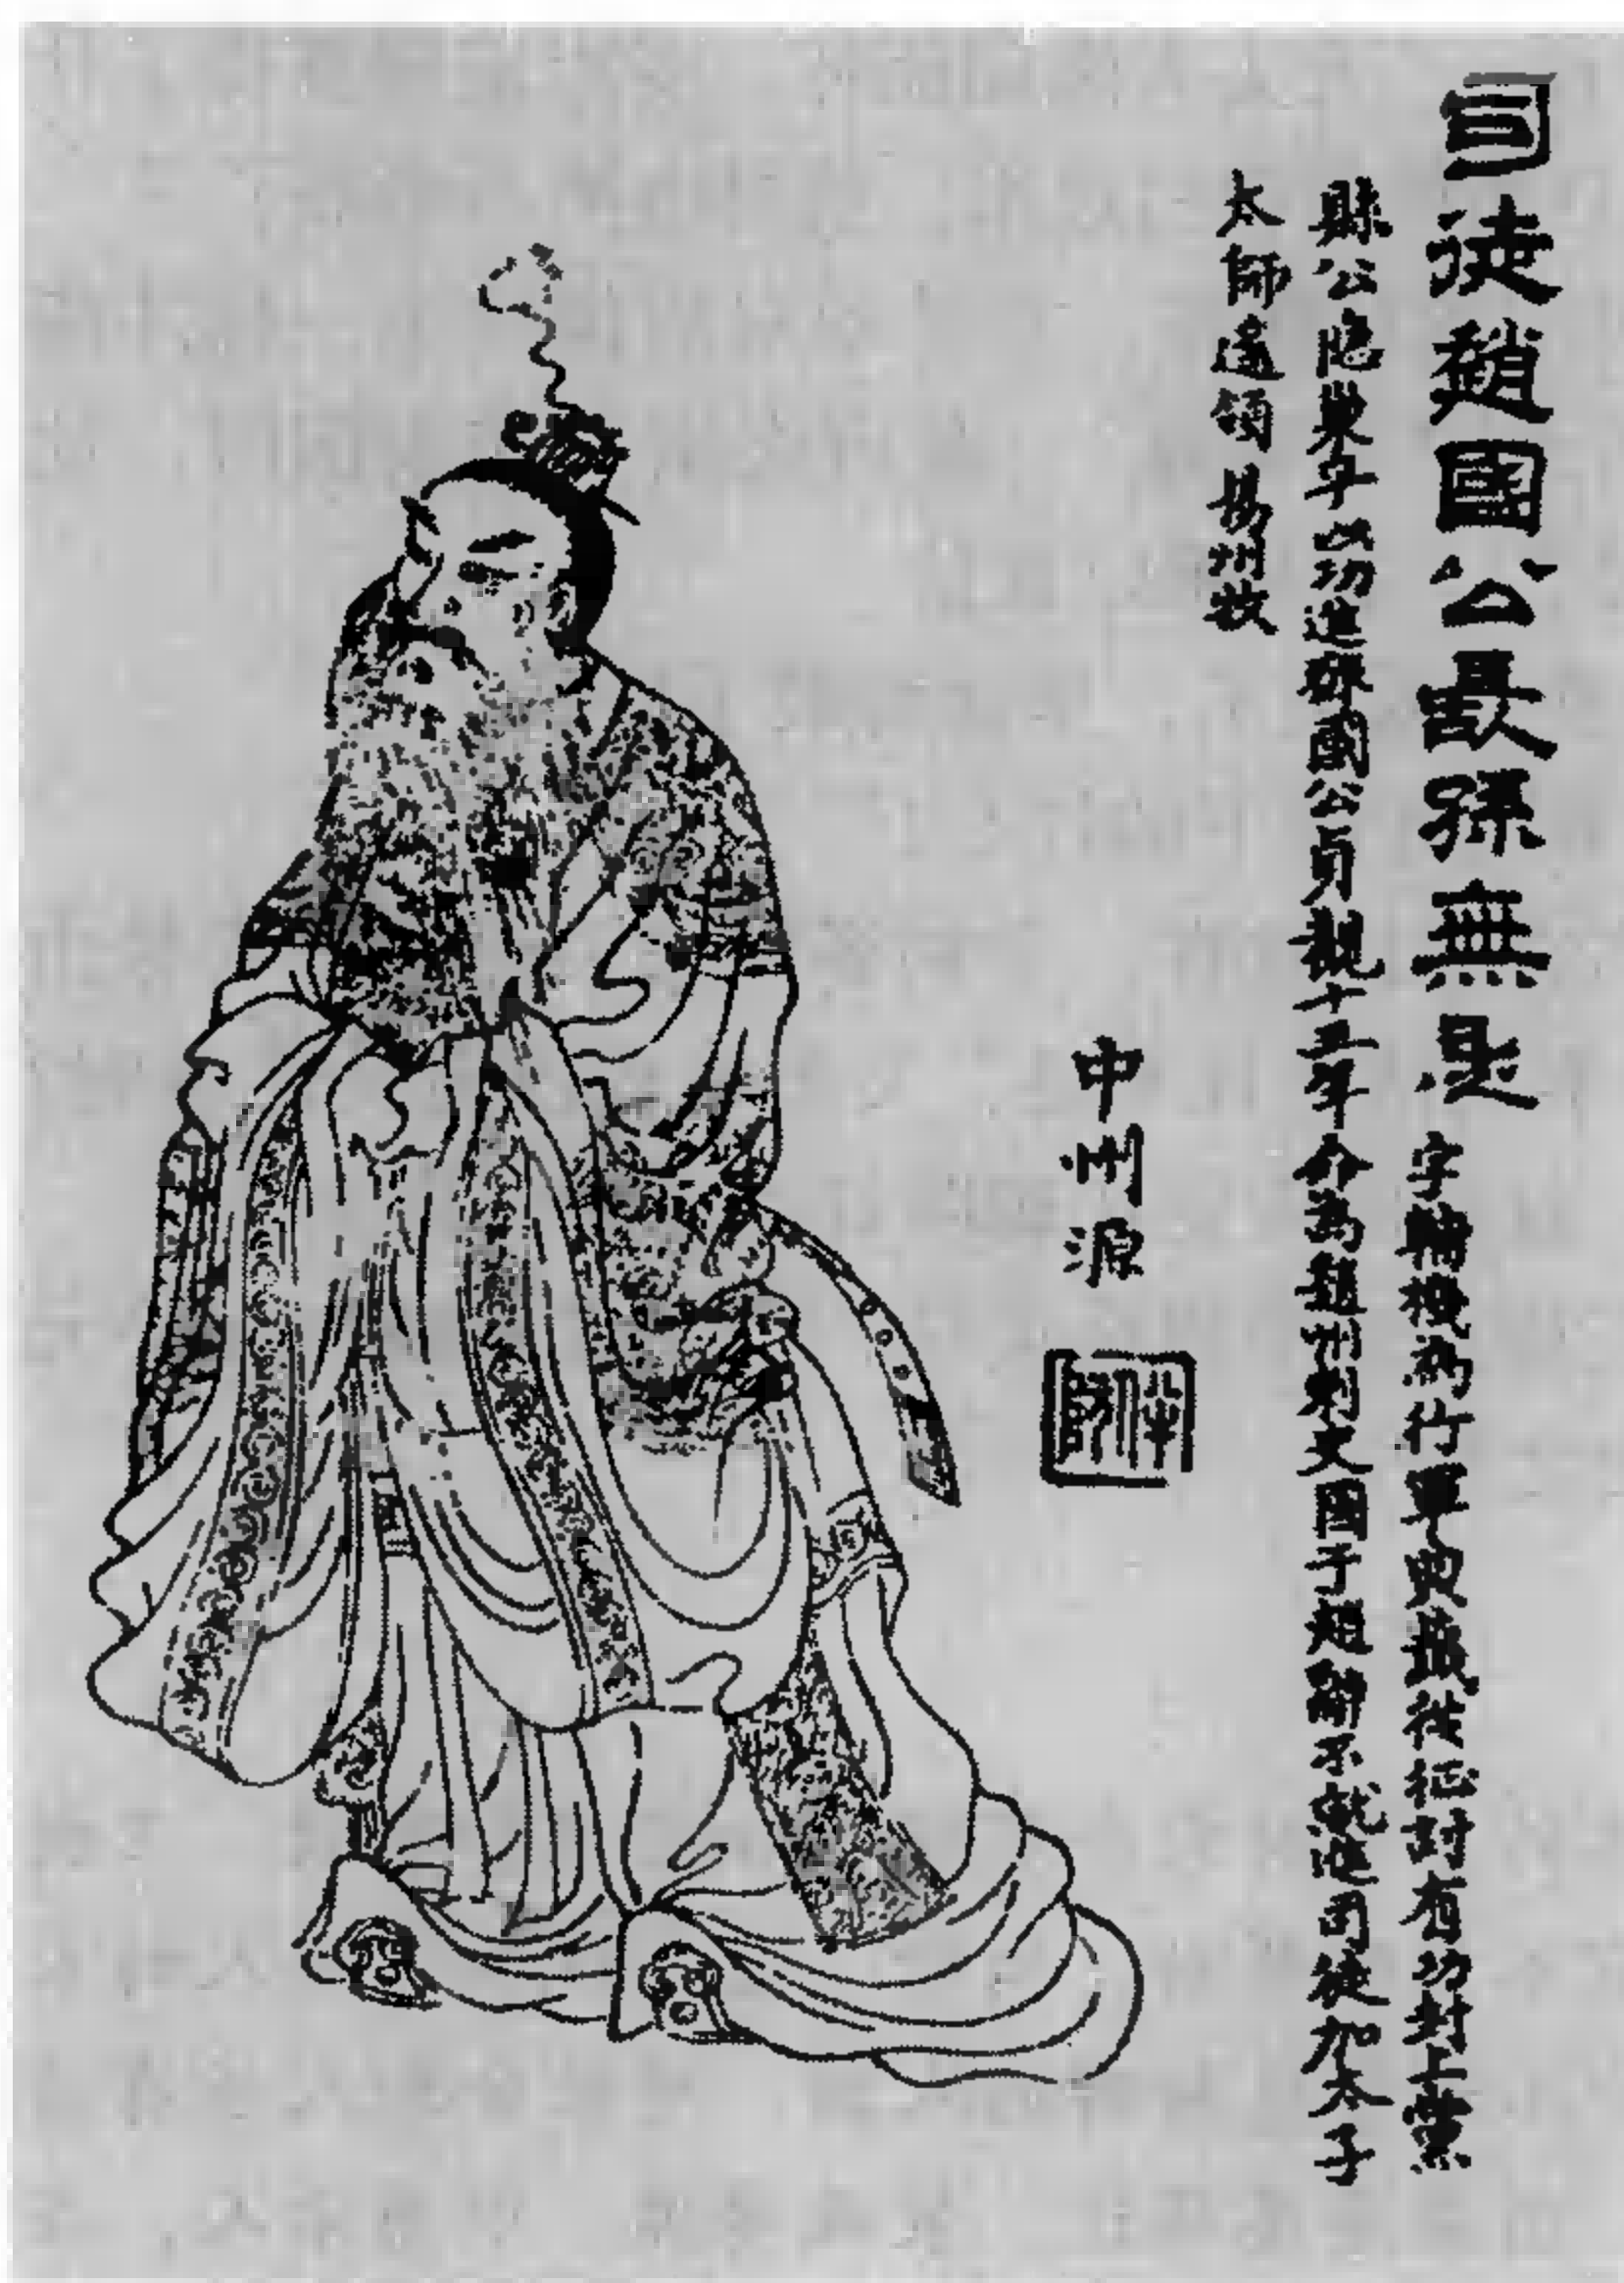 司徒趙國公長孫無忌 字輔機為行軍典籤從征討有功封上黨
縣公隱巢平以功進齊國公貞觀十五年命為趙州刺史國于趙辭不就進司徒加太子
太師遙領揚州牧
中州源